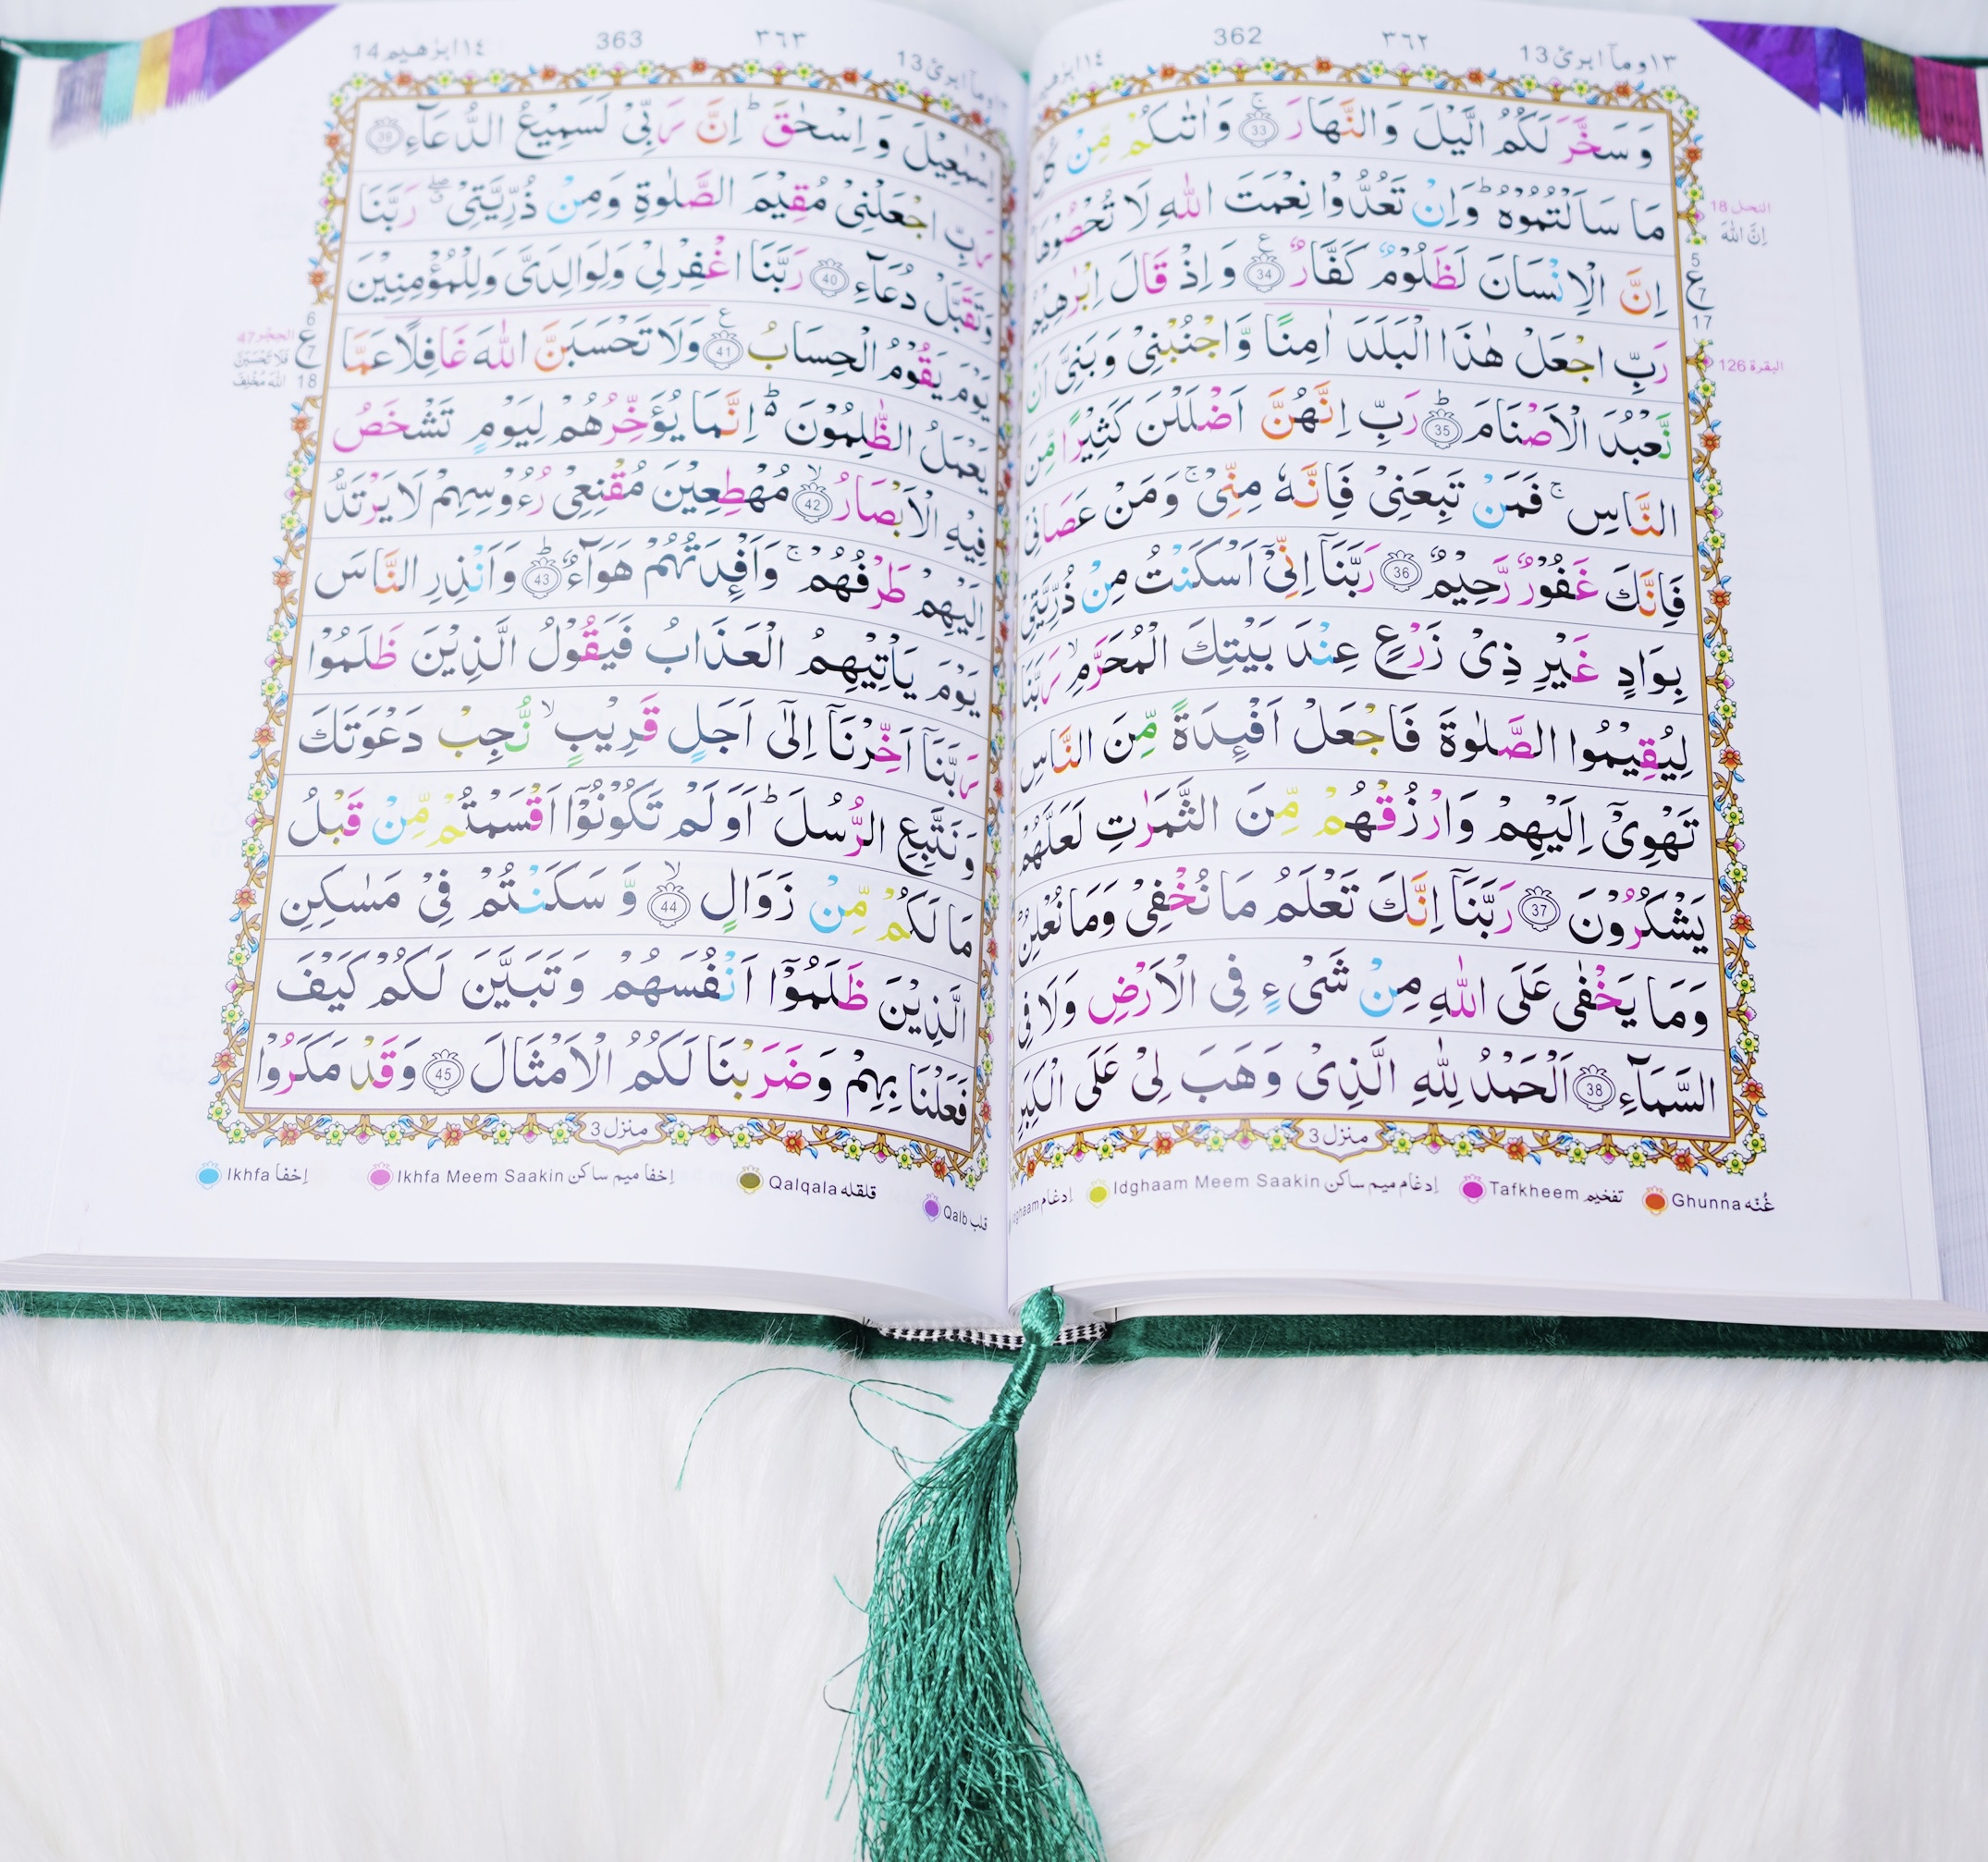 ١٣ ومآ ابرئ 13
٣٦٢
362
١٤ ابرٰهيم
وَسَخَّرَ لَكُمُ الَّيْلَ وَالنَّهَارَ ۚ 33 وَاٰتٰىكُمْ مِّنْ كُلِّ
مَا سَاَلْتُمُوْهُ ؕ وَاِنْ تَعُدُّوْا نِعْمَتَ اللّٰهِ لَا تُحْصُوْهَا
اِنَّ الْاِنْسَانَ لَظَلُوْمٌ كَفَّارٌ 34 وَاِذْ قَالَ اِبْرٰهِيْمُ
رَبِّ اجْعَلْ هٰذَا الْبَلَدَ اٰمِنًا وَّاجْنُبْنِيْ وَبَنِيَّ اَنْ
نَّعْبُدَ الْاَصْنَامَ ؕ 35 رَبِّ اِنَّهُنَّ اَضْلَلْنَ كَثِيْرًا مِّنَ
النَّاسِ ۚ فَمَنْ تَبِعَنِيْ فَاِنَّهٗ مِنِّيْ ۚ وَمَنْ عَصَانِيْ
فَاِنَّكَ غَفُوْرٌ رَّحِيْمٌ 36 رَبَّنَاۤ اِنِّيْۤ اَسْكَنْتُ مِنْ ذُرِّيَّتِيْ
بِوَادٍ غَيْرِ ذِيْ زَرْعٍ عِنْدَ بَيْتِكَ الْمُحَرَّمِ ۙ رَبَّنَا
لِيُقِيْمُوا الصَّلٰوةَ فَاجْعَلْ اَفْـِٕدَةً مِّنَ النَّاسِ
تَهْوِيْۤ اِلَيْهِمْ وَارْزُقْهُمْ مِّنَ الثَّمَرٰتِ لَعَلَّهُمْ
يَشْكُرُوْنَ 37 رَبَّنَاۤ اِنَّكَ تَعْلَمُ مَا نُخْفِيْ وَمَا نُعْلِنُ ؕ
وَمَا يَخْفٰى عَلَى اللّٰهِ مِنْ شَيْءٍ فِي الْاَرْضِ وَلَا فِي
السَّمَآءِ 38 اَلْحَمْدُ لِلّٰهِ الَّذِيْ وَهَبَ لِيْ عَلَى الْكِبَرِ
منزل 3
النحل 18
اِنَّ اللّٰهَ
5
ع
7
17
البقرة 126
Ghunna غُنّه
Tafkheem تفخيم
Idghaam Meem Saakin إدغام ميم ساكن
إدغام
١٣ ومآ ابرئ 13
٣٦٣
363
١٤ ابرٰهيم 14
اِسْمٰعِيْلَ وَاِسْحٰقَ ؕ اِنَّ رَبِّيْ لَسَمِيْعُ الدُّعَآءِ 39
رَبِّ اجْعَلْنِيْ مُقِيْمَ الصَّلٰوةِ وَمِنْ ذُرِّيَّتِيْ ۖ رَبَّنَا
وَتَقَبَّلْ دُعَآءِ 40 رَبَّنَا اغْفِرْ لِيْ وَلِوَالِدَيَّ وَلِلْمُؤْمِنِيْنَ
يَوْمَ يَقُوْمُ الْحِسَابُ 41 وَلَا تَحْسَبَنَّ اللّٰهَ غَافِلًا عَمَّا
يَعْمَلُ الظّٰلِمُوْنَ ؕ اِنَّمَا يُؤَخِّرُهُمْ لِيَوْمٍ تَشْخَصُ
فِيْهِ الْاَبْصَارُ ۙ 42 مُهْطِعِيْنَ مُقْنِعِيْ رُءُوْسِهِمْ لَا يَرْتَدُّ
اِلَيْهِمْ طَرْفُهُمْ ۚ وَاَفْـِٕدَتُهُمْ هَوَآءٌ ؕ 43 وَاَنْذِرِ النَّاسَ
يَوْمَ يَاْتِيْهِمُ الْعَذَابُ فَيَقُوْلُ الَّذِيْنَ ظَلَمُوْا
رَبَّنَاۤ اَخِّرْنَاۤ اِلٰۤى اَجَلٍ قَرِيْبٍ ۙ نُّجِبْ دَعْوَتَكَ
وَنَتَّبِعِ الرُّسُلَ ؕ اَوَلَمْ تَكُوْنُوْۤا اَقْسَمْتُمْ مِّنْ قَبْلُ
مَا لَكُمْ مِّنْ زَوَالٍ ۙ 44 وَّسَكَنْتُمْ فِيْ مَسٰكِنِ
الَّذِيْنَ ظَلَمُوْۤا اَنْفُسَهُمْ وَتَبَيَّنَ لَكُمْ كَيْفَ
فَعَلْنَا بِهِمْ وَضَرَبْنَا لَكُمُ الْاَمْثَالَ 45 وَقَدْ مَكَرُوْا
منزل 3
6
ع
7
18
الحجر 47
فَلَا تَحْسَبَنَّ
اللّٰهَ مُخْلِفَ
Qalb قلب
Qalqala قلقله
Ikhfa Meem Saakin إخفا ميم ساكن
Ikhfa إخفا